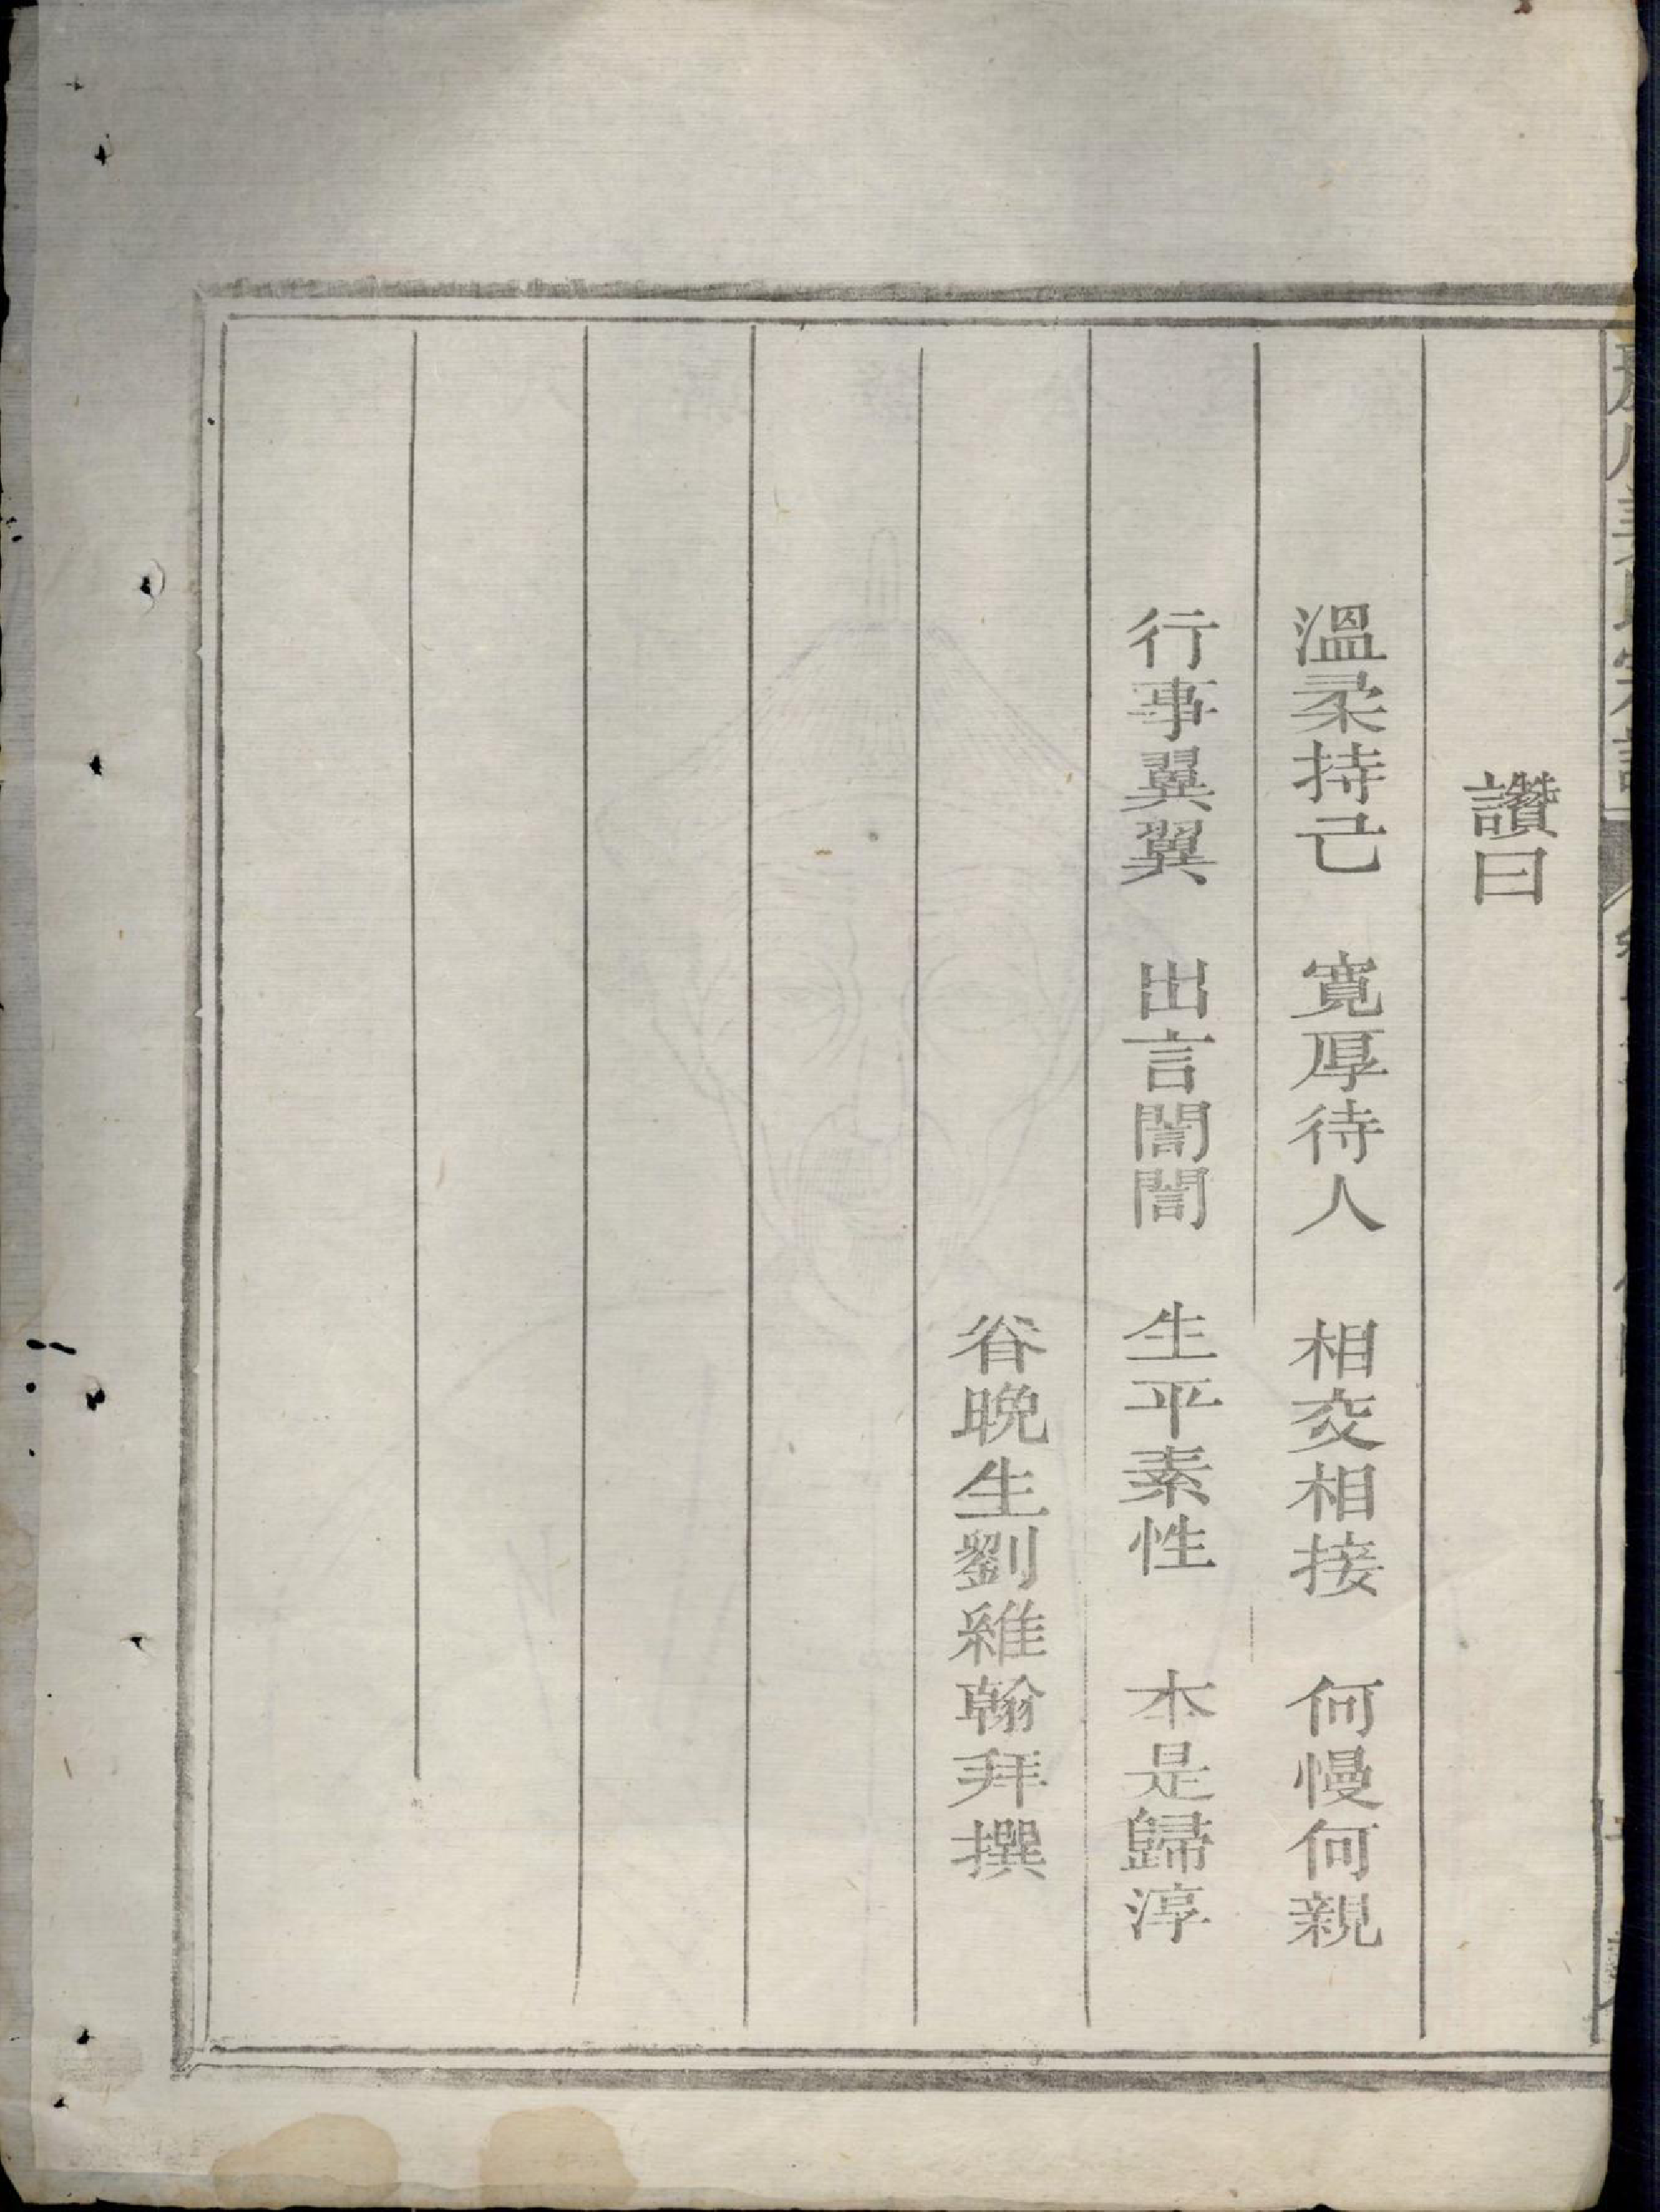 讚曰
溫柔持己 寬厚待人 相交相接 何慢何親
行事翼翼 出言誾誾 生平素性 本是歸淳
眷晚生劉維翰拜撰